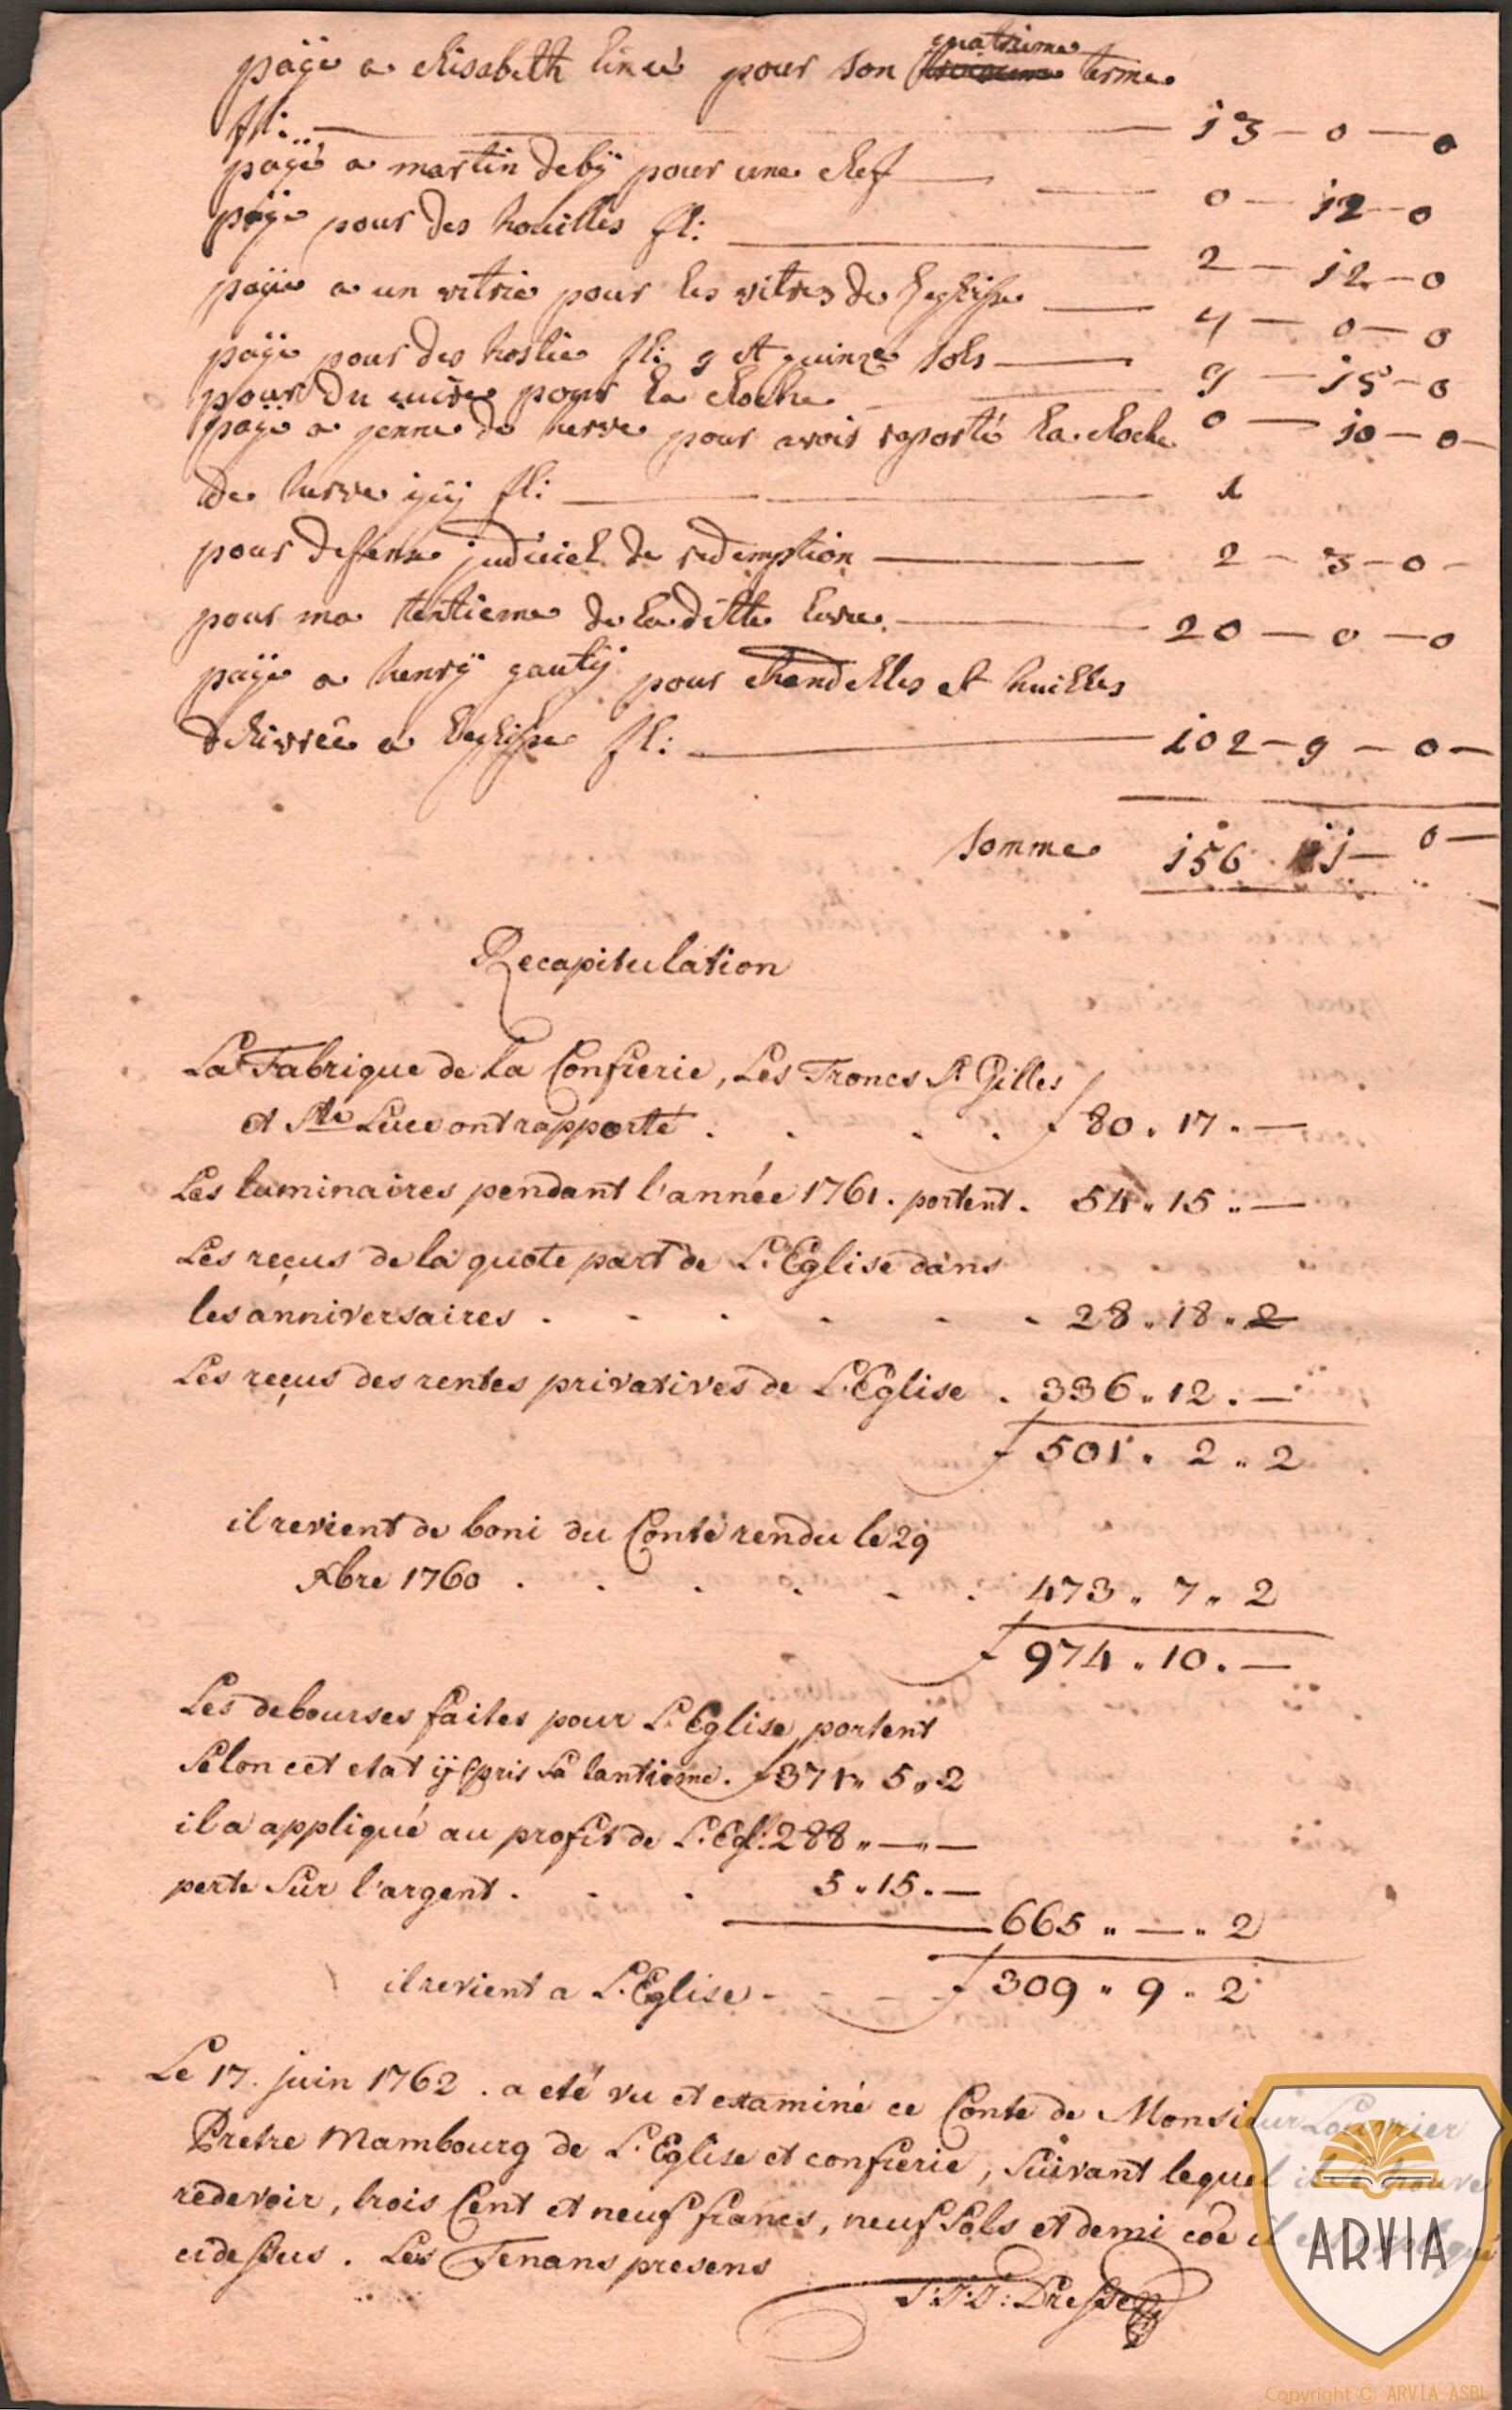 payé a elisabeth liné pour son quatrieme terme
fl: 13 — 0 — 0
payé a martin deby pour une clef 0 — 12 — 0
paye pour des houilles fl: 2 — 12 — 0
payé a un vitrie pour les vitres de leglisse 4 — 0 — 0
paye pour des hostie fl: 9 et quinze sols 9 — 15 — 0
pour du cuire pour la cloche 0 — 10 — 0
paye a jenne de herve pour avoir raporté la cloche
de herve fl: 1
pour defense judiciel de redemption 2 — 3 — 0
pour ma tentieme de la ditte 20 — 0 — 0
paye a henry gauty pour chandelles et huilles
delivrée a leglisse fl: 102 — 9 — 0
somme 156 11 — 0
Recapitulation
La Fabrique de la Confrerie, Les Troncs St Gilles
et Ste Luce ont rapporté . . . . f 80 . 17 . —
Les luminaires pendant l'année 1761 . portent . 54 . 15 .. —
Les reçus de la quote part de L'Eglise dans
les anniversaires . . . . . . 28 .. 18 .. 2
Les reçus des rentes privatives de L'Eglise . 336 .. 12 . —
f 501 . 2 .. 2
il revient de boni du Conte rendu le 29
Xbre 1760 . . . . . . 473 .. 7 .. 2
f 974 .. 10 . —
Les debourses faites pour L'Eglise portent
selon cet etat y Compris sa tantieme . f 371 .. 5 .. 2
il a appliqué au profit de L'Egl: 288 .. — .. —
perte sur l'argent . . . 5 .. 15 . —
665 .. — .. 2
il revient a L'Eglise - - - f 309 .. 9 .. 2
Le 17. juin 1762 . a eté vu et examiné ce Conte de Monsieur Louvrier
Pretre Mambourg de L'Eglise et confrerie, suivant lequel il se trouve
redevoir, trois Cent et neuf francs, neuf sols et demi coe il est expliqué
cidessus . Les Tenans presens
J: J: J: Dresse
ARVIA
Copyright © ARVIA ASBL